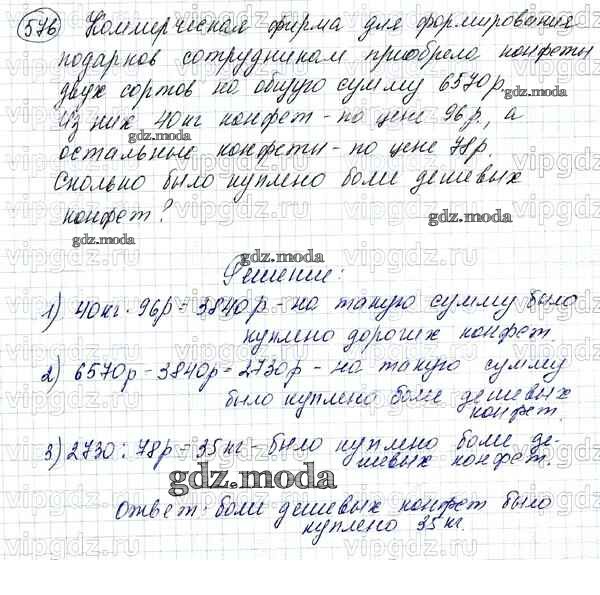 576 Коммерческая фирма для формирования
подарков сотрудникам приобрела конфеты
двух сортов на общую сумму 6570 р.
Из них 40 кг конфет - по цене 96 р., а
остальные конфеты - по цене 78 р.
Сколько было куплено боле дешевых
конфет?
Решение:
1) 40 кг · 96 р = 3840 р - на такую сумму было
куплено дорогих конфет.
2) 6570 р - 3840 р = 2730 р - на такую сумму
было куплено боле дешевых
конфет.
3) 2730 : 78 р = 35 кг - было куплено боле де-
шевых конфет.
gdz.moda
Ответ: боле дешевых конфет было
куплено 35 кг.